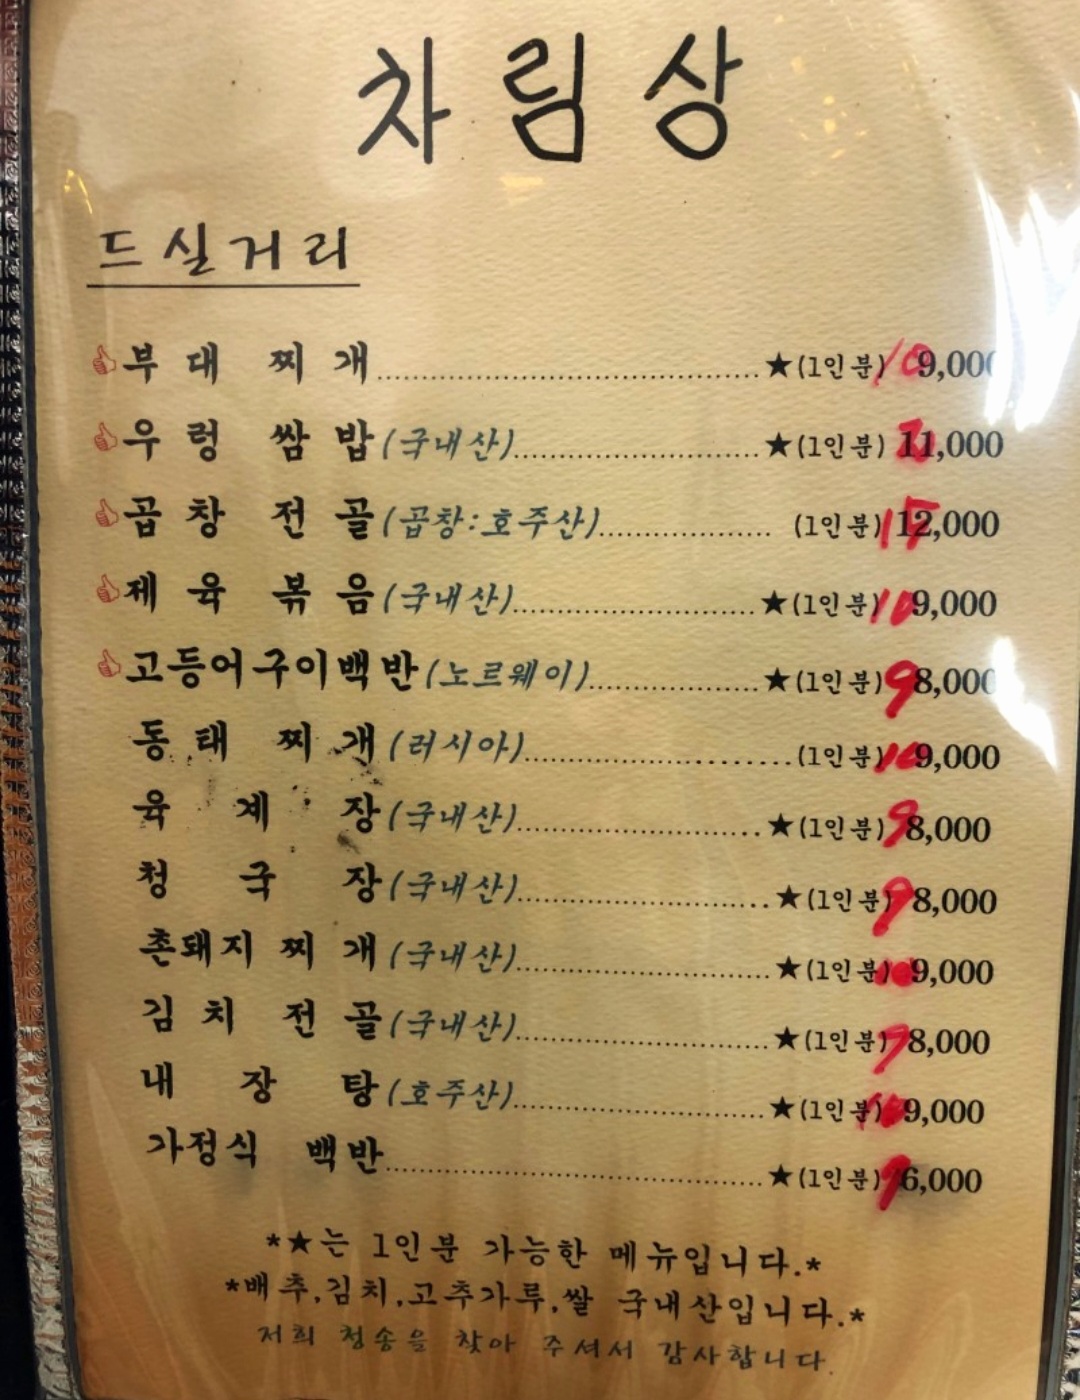 차림상
드실거리
부대찌개 ★(1인분) 10 9,000
우렁쌈밥(국내산) ★(1인분) 11,000
곱창전골(곱창:호주산) (1인분) 15 12,000
제육볶음(국내산) ★(1인분) 10 9,000
고등어구이백반(노르웨이) ★(1인분) 9 8,000
동태찌개(러시아) (1인분) 10 9,000
육계장(국내산) ★(1인분) 9 8,000
청국장(국내산) ★(1인분) 9 8,000
촌돼지찌개(국내산) ★(1인분) 10 9,000
김치전골(국내산) ★(1인분) 9 8,000
내장탕(호주산) ★(1인분) 10 9,000
가정식 백반 ★(1인분) 9 6,000
*★는 1인분 가능한 메뉴입니다.*
*배추,김치,고추가루,쌀 국내산입니다.*
저희 청송을 찾아 주셔서 감사합니다.